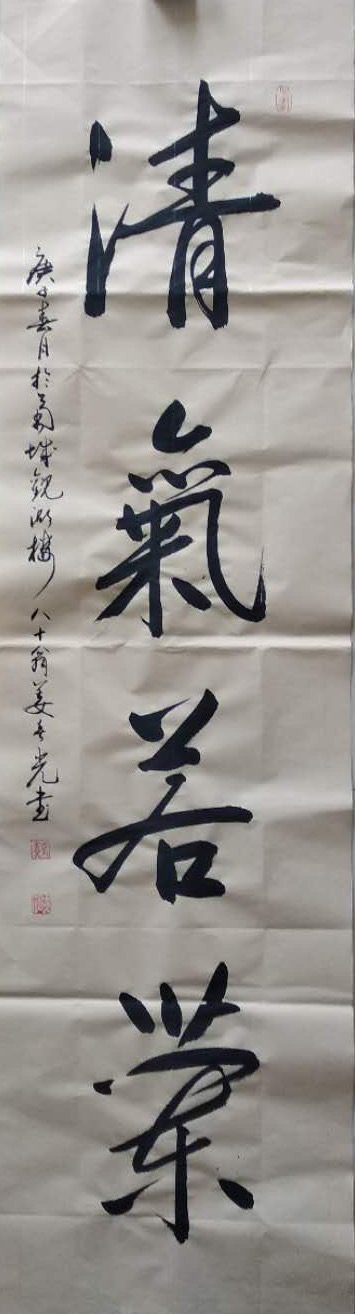 清氣若蘭
庚子春月於菊城觀湖樓 八十翁姜光書